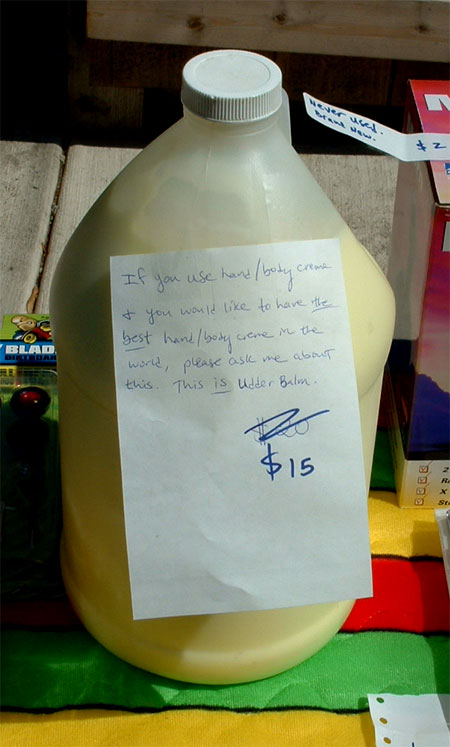 Never Used.
Brand New.
$2
If you use hand/body creme
& you would like to have the
best hand/body creme in the
world, please ask me about
this. This is Udder Balm.
$20
$15
BLAD
2
X